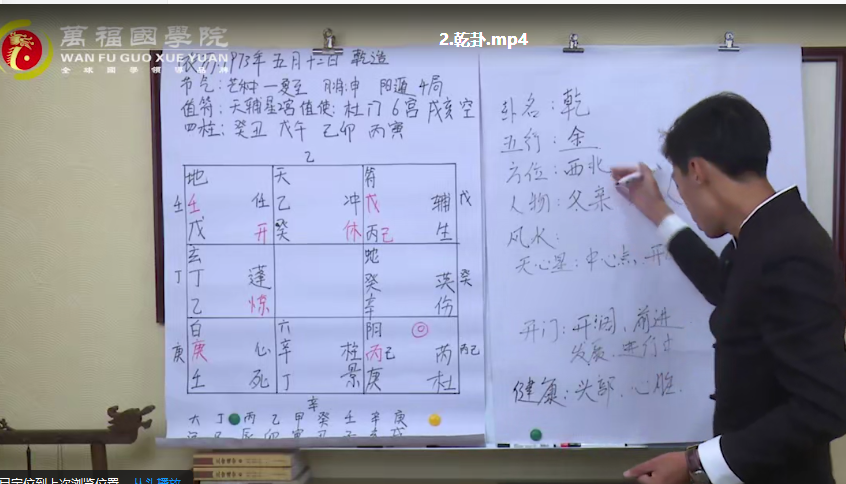 萬福國學院
WAN FU GUO XUE YUAN
全球國學領導品牌
2.乾卦.mp4
1973年 五月十二日 乾造
节气：芒种—夏至 胎:申 阳遁 4局
值符：天辅星2宫 值使：杜门 6宫 戌亥空
四柱：癸丑 戊午 乙卯 丙寅
乙
地 天 符
壬 壬 任 乙 冲 戊 辅 戊
戊 开 癸 休 丙己 生
玄 蛇
丁 丁 蓬 癸 英 癸
乙 惊 辛 伤
白 六 阴
庚 庚 心 辛 柱 丙己 芮 丙己
壬 死 丁 景 庚 杜
辛
六 丁 丙 乙 甲 癸 壬 辛 庚
卦名：乾
五行：金
方位：西北
人物：父亲
风水：
天心星：中心点，开
开门：开阔，前进
发展，进行
健康：头部，心脏.
已定位到上次浏览位置 从头播放